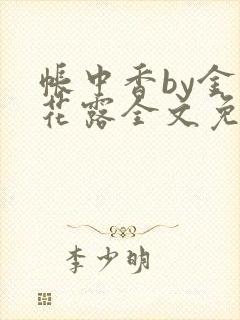 帐中香by金
花露全文免
李少明